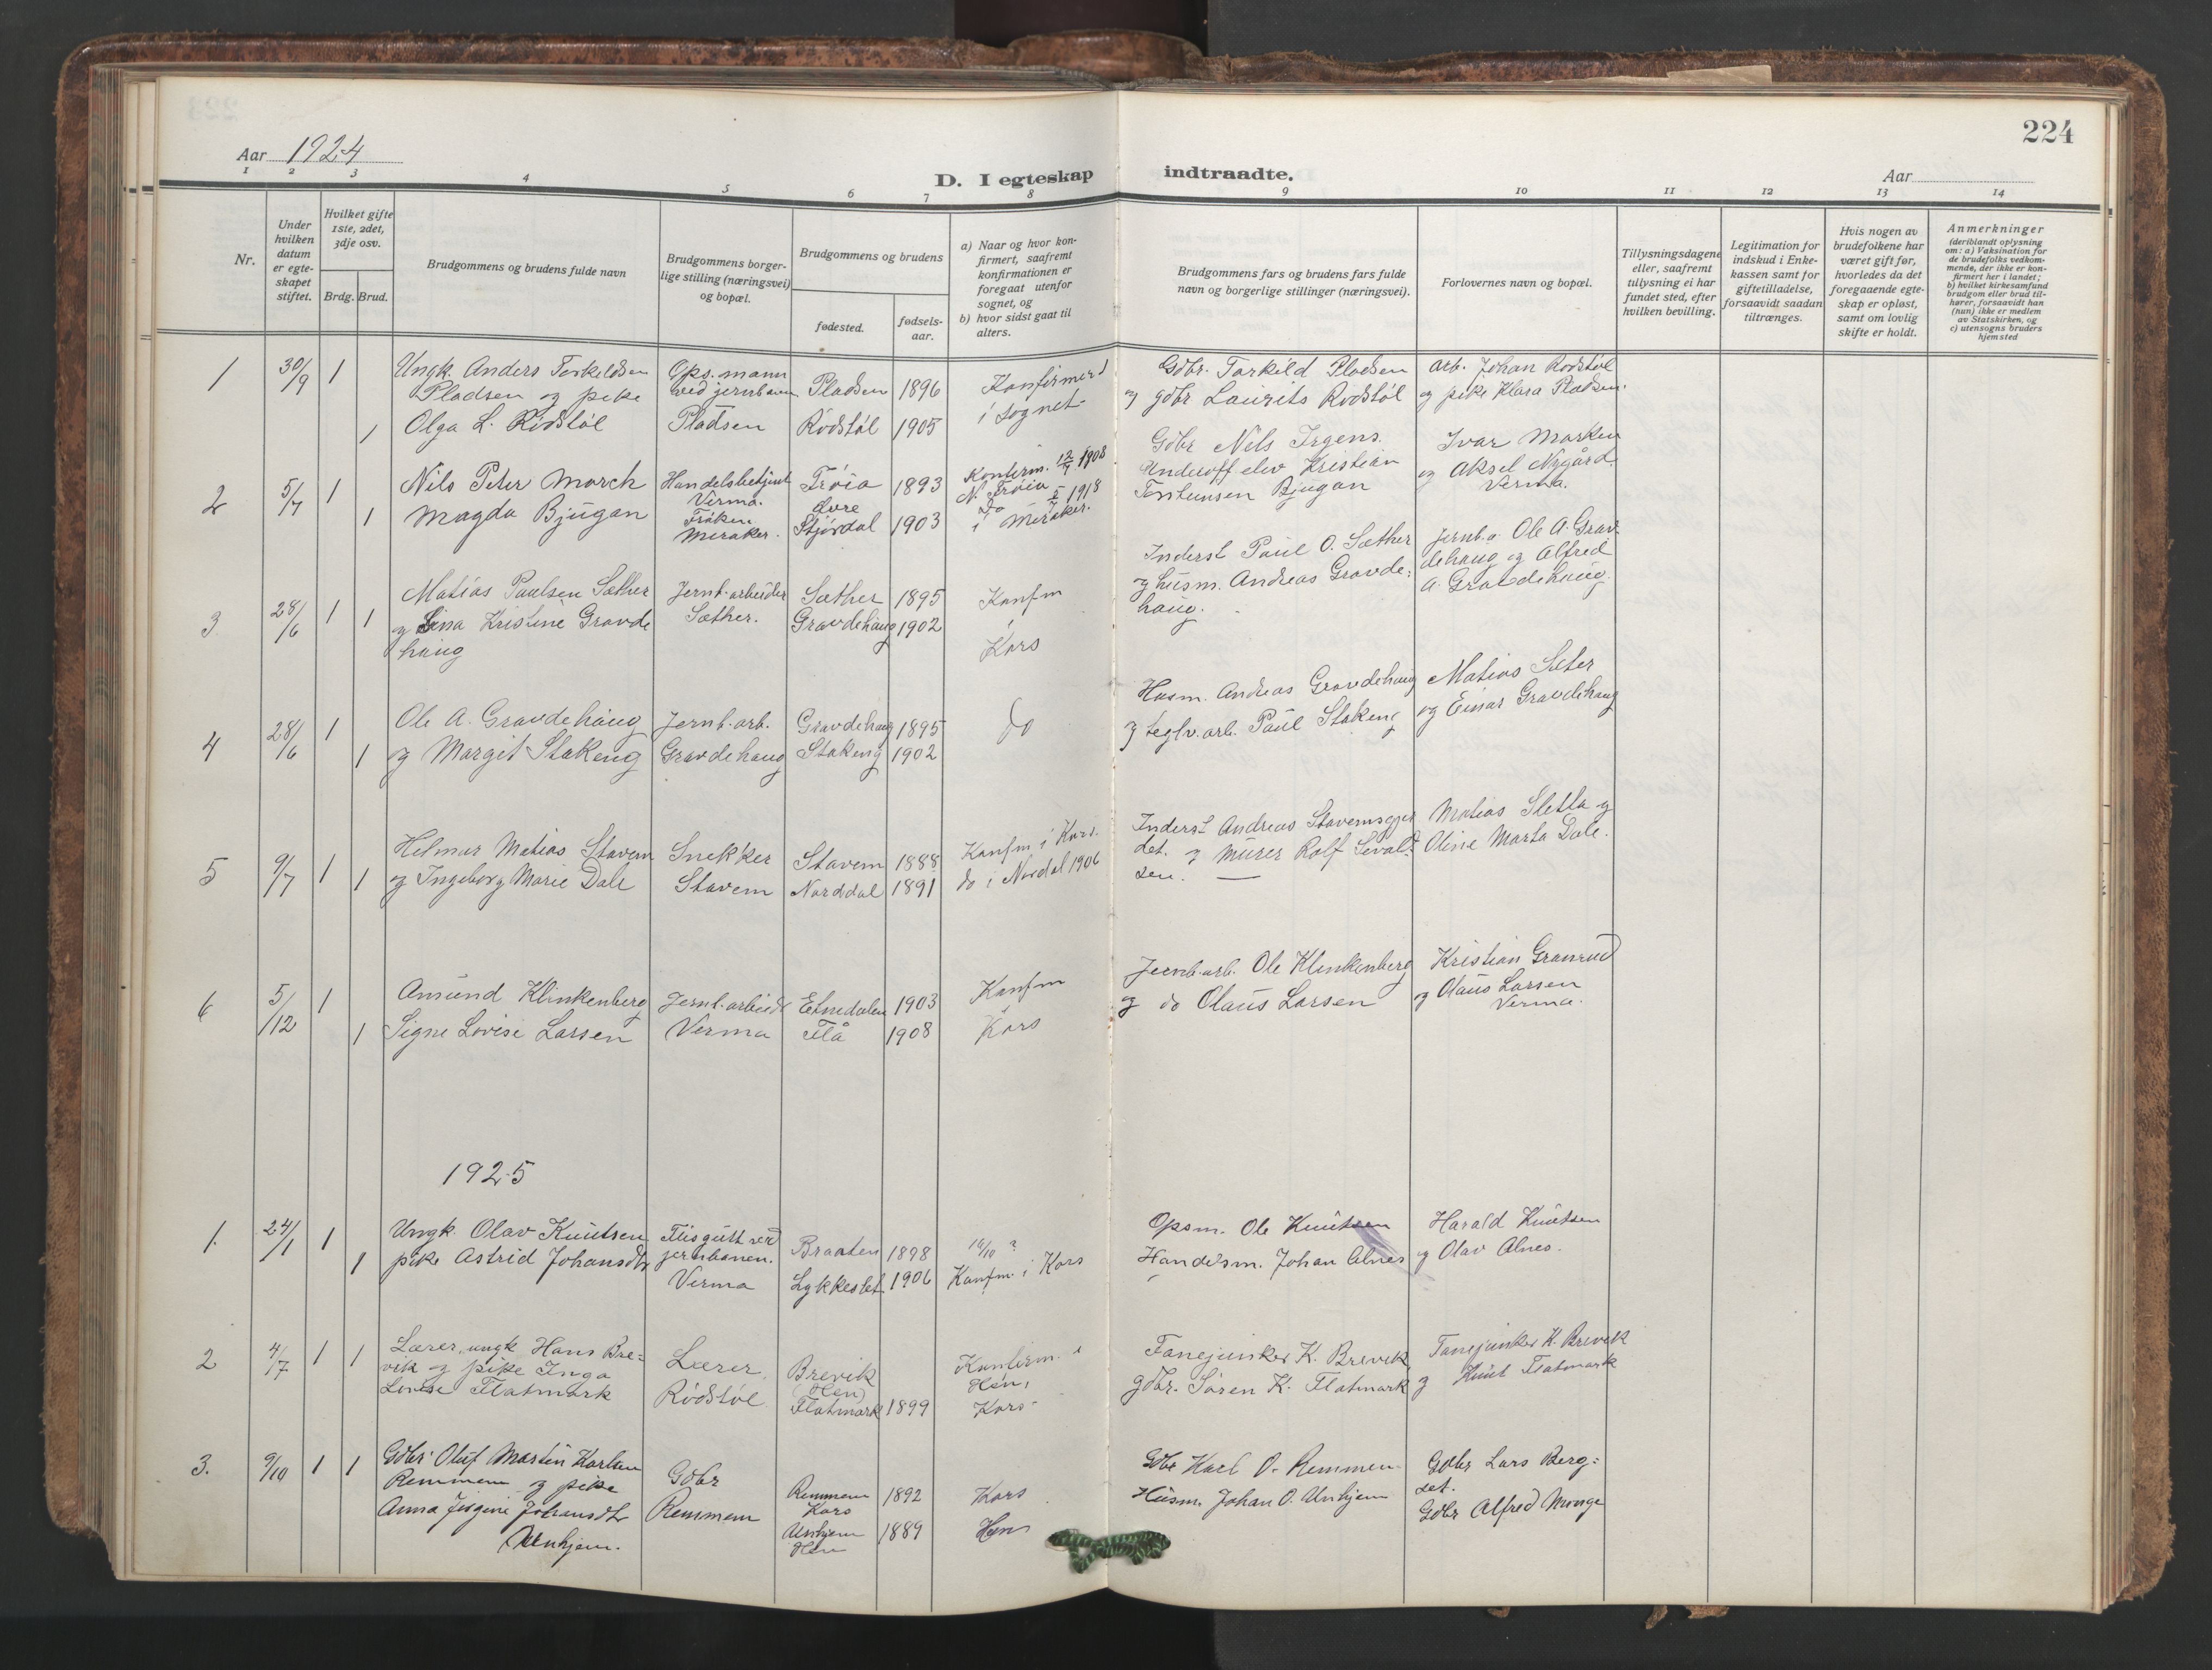 224
Aar 1924
D. I egteskap indtraadte.
Aar
1 2 3 4 5 6 7 8 9 10 11 12 13 14
Nr.
Under hvilken datum er egte-skapet stiftet.
Hvilket gifte 1ste, 2det, 3dje osv.
Brdg. Brud.
Brudgommens og brudens fulde navn
Brudgommens borger-lige stilling (næringsvei) og bopæl.
Brudgommens og brudens
fødested.
fødsels-aar.
a) Naar og hvor kon-firmert, saafremt konfirmationen er foregaat utenfor sognet, og
b) hvor sidst gaat til alters.
Brudgommens fars og brudens fars fulde navn og borgerlige stillinger (næringsvei).
Forlovernes navn og bopæl.
Tillysningsdagene eller, saafremt tillysning ei har fundet sted, efter hvilken bevilling.
Legitimation for indskud i Enke-kassen samt for giftetilladelse, forsaavidt saadan tiltrænges.
Hvis nogen av brudefolkene har været gift før, hvorledes da det foregaaende egte-skap er opløst, samt om lovlig skifte er holdt.
Anmerkninger
(deriblandt oplysning om: a) Vaksination for de brudefolks vedkom-mende, der ikke er kon-firmert her i landet; b) hvilket kirkesamfund brudgom eller brud til-hører, forsaavidt han (nun) ikke er medlem av Statskirken, og c) utensogns bruders hjemsted
1 30/9 1 Ungk. Anders Torkildsen Ops.mann Pladsen 1896 Konfirmerd Gdbr. Torkild Pladsen arb. Johan Rødstøl
Pladsen og pike ved jernbanen i sognet og gdbr Laurits Rødstøl og pike Klara Pladsen.
1 Olga L. Rødstøl Pladsen Rødstøl 1905
2 5/7 1 Nils Peter Morck Handelsbetjent Frøia 1893 Konfirm. 12/7 1908 Gdbr Nils Irgens. Ivar Marken
Verma. N. Frøia Underoff.elev Kristian og Aksel Nygård.
1 Magda Bjugan Frøken Meraker. Øvre Stjørdal 1903 Do 1918 i Meraker. Torstensen Bjugan Verma.
3 28/6 1 1 Matias Paulsen Sæther Jernb.arbeider Sæther 1895 Konfm Inderst Paul O. Sæther Jernb.a. Ole A. Grav-
og Lina Kristine Gravde Sæther. Gravdehaug 1902 i og husm. Andreas Gravde: dehaug og Alfred
haug Kors haug. A. Gravdehaug.
4 28/6 1 Ole A. Gravdehaug Jernb.arb. Gravdehaug 1895 do Husm. Andreas Gravdehaug Matias Sæter
1 og Margit Stakeng Gravdehaug Stakeng 1902 og teglv.arb. Paul Stakeng og Einar Gravdehaug
5 9/7 1 1 Helmar Matias Stavem Snekker Stavem 1888 Konfm i Kors. Inderst Andreas Stavemsgjer Matias Sletta og
og Ingeborg Marie Dale Stavem Norddal 1891 do i Nordal 1906 det. og murer Rolf Sevald Oline Marta Dale.
sen.
6 5/12 1 Amund Klinkenberg Jernb.arbeide Etnedalen 1903 Konfm Jernb.arb. Ole Klinkenberg Kristian Granrud
1 Signe Lovise Larsen Verma Flå 1908 i Kors og do Olaus Larsen og Olaus Larsen
Verma.
1925
1. 24/1 1 Ungk. Olav Knutsen Flisgutt ved Braaten 1898 16/10 ? Opsm. Ole Knutsen Harald Knutsen
1 pike Astrid Johansdtr jernbanen. Verma Lykkeslet 1906 Konfm. i Kors Handelsm. Johan Alnes og Olav Alnes.
2 4/7 1 1 Lærer, ungk Hans Bre= Lærer, Brevik Konfirm. i Fanejunker K. Brevik Fanejunker K. Brevik
vik og pike Inga (Hen) Hen, gdbr. Søren K. Flatmark og Knut Flatmark
Lovise Flatmark Rødstøl Flatmark 1899 Kors
3. 9/10 1 1 Gdbr Oluf Martin Karlsen Gdbr Remmem Kors 1892 Kors Gdbr Karl O. Remmem Gdbr Lars Berg=
Remmem og pike det.
Anna Jørgine Johansdtr Remmem Unhjem Hen 1889 Hen Husm. Johan O. Unhjem Gdbr Alfred Monge
Unhjem.